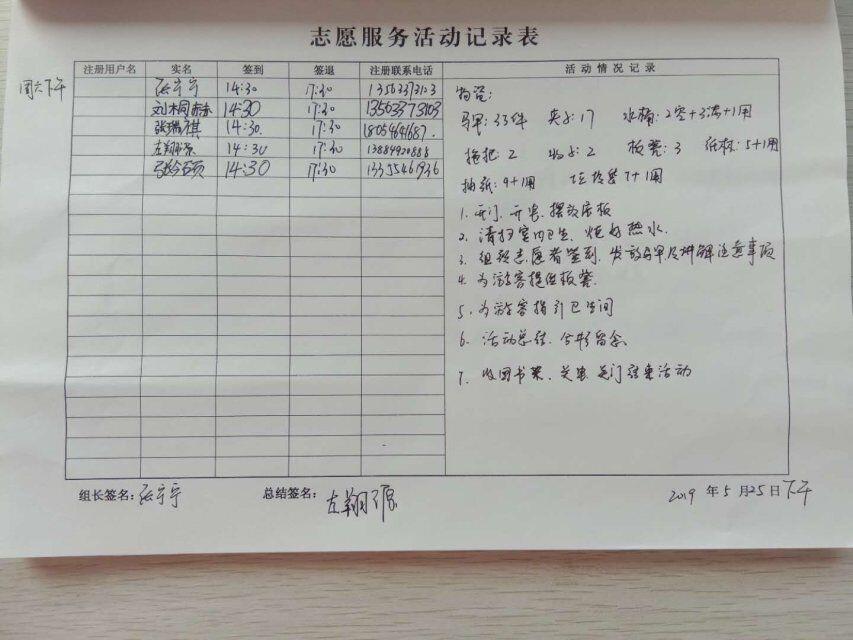 志愿服务活动记录表
注册用户名 实名 签到 签退 注册联系电话 活动情况记录
周六下午
张宇宁 14:30 17:30 13563373103
14:30 17:30 13563373103
张瑞祺 14:30. 17:30 18054641687.
左翔源 14:30 17:30 13884920888
14:30 17:30 13355461936
物资:
马甲:33件 夹子:17 水桶:2空+3满+1用
拖把:2 板凳:3 纸杯:5+1用
抽纸:9+1用 垃圾袋7+1用
1. 开门、开窗、摆放展板
2. 清扫室内卫生、烧好热水.
3. 组织志愿者签到、发放马甲及讲解注意事项
4. 为游客提供板凳.
5. 为游客指引卫生间
6. 活动总结、合影留念
7. 收回书架、关窗、关门结束活动
组长签名:张宇宁 总结签名:左翔源 2019年5月25日下午